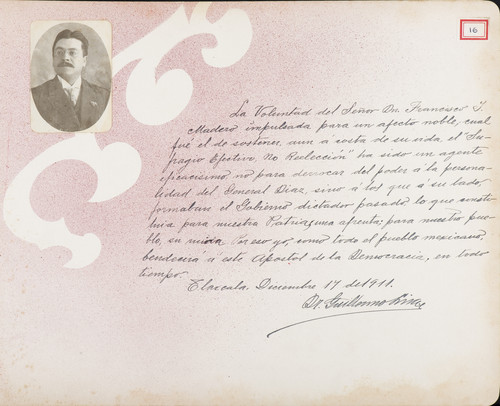 16
La Voluntad del Señor Dn. Francisco I
Madero impulsada para un afecto noble, cual
fué el de sostener aun a costa de su vida, el "Su-
fragio Efectivo, No Reelección" ha sido un agente
eficacisimo no para derrocar del poder á la persona-
lidad del General Diaz, sino á los que á su lado
formaban el Gobierno dictador pasado lo que consti-
tuia para nuestra Patria una afrenta; para nuestro pue-
blo, su ruina. Por eso yo, como todo el pueblo mexicano,
bendeciré á este Apostol de la Democracia, en todo
tiempo.
Tlaxcala. Diciembre 17 de 1911.
Dr. Guillermo